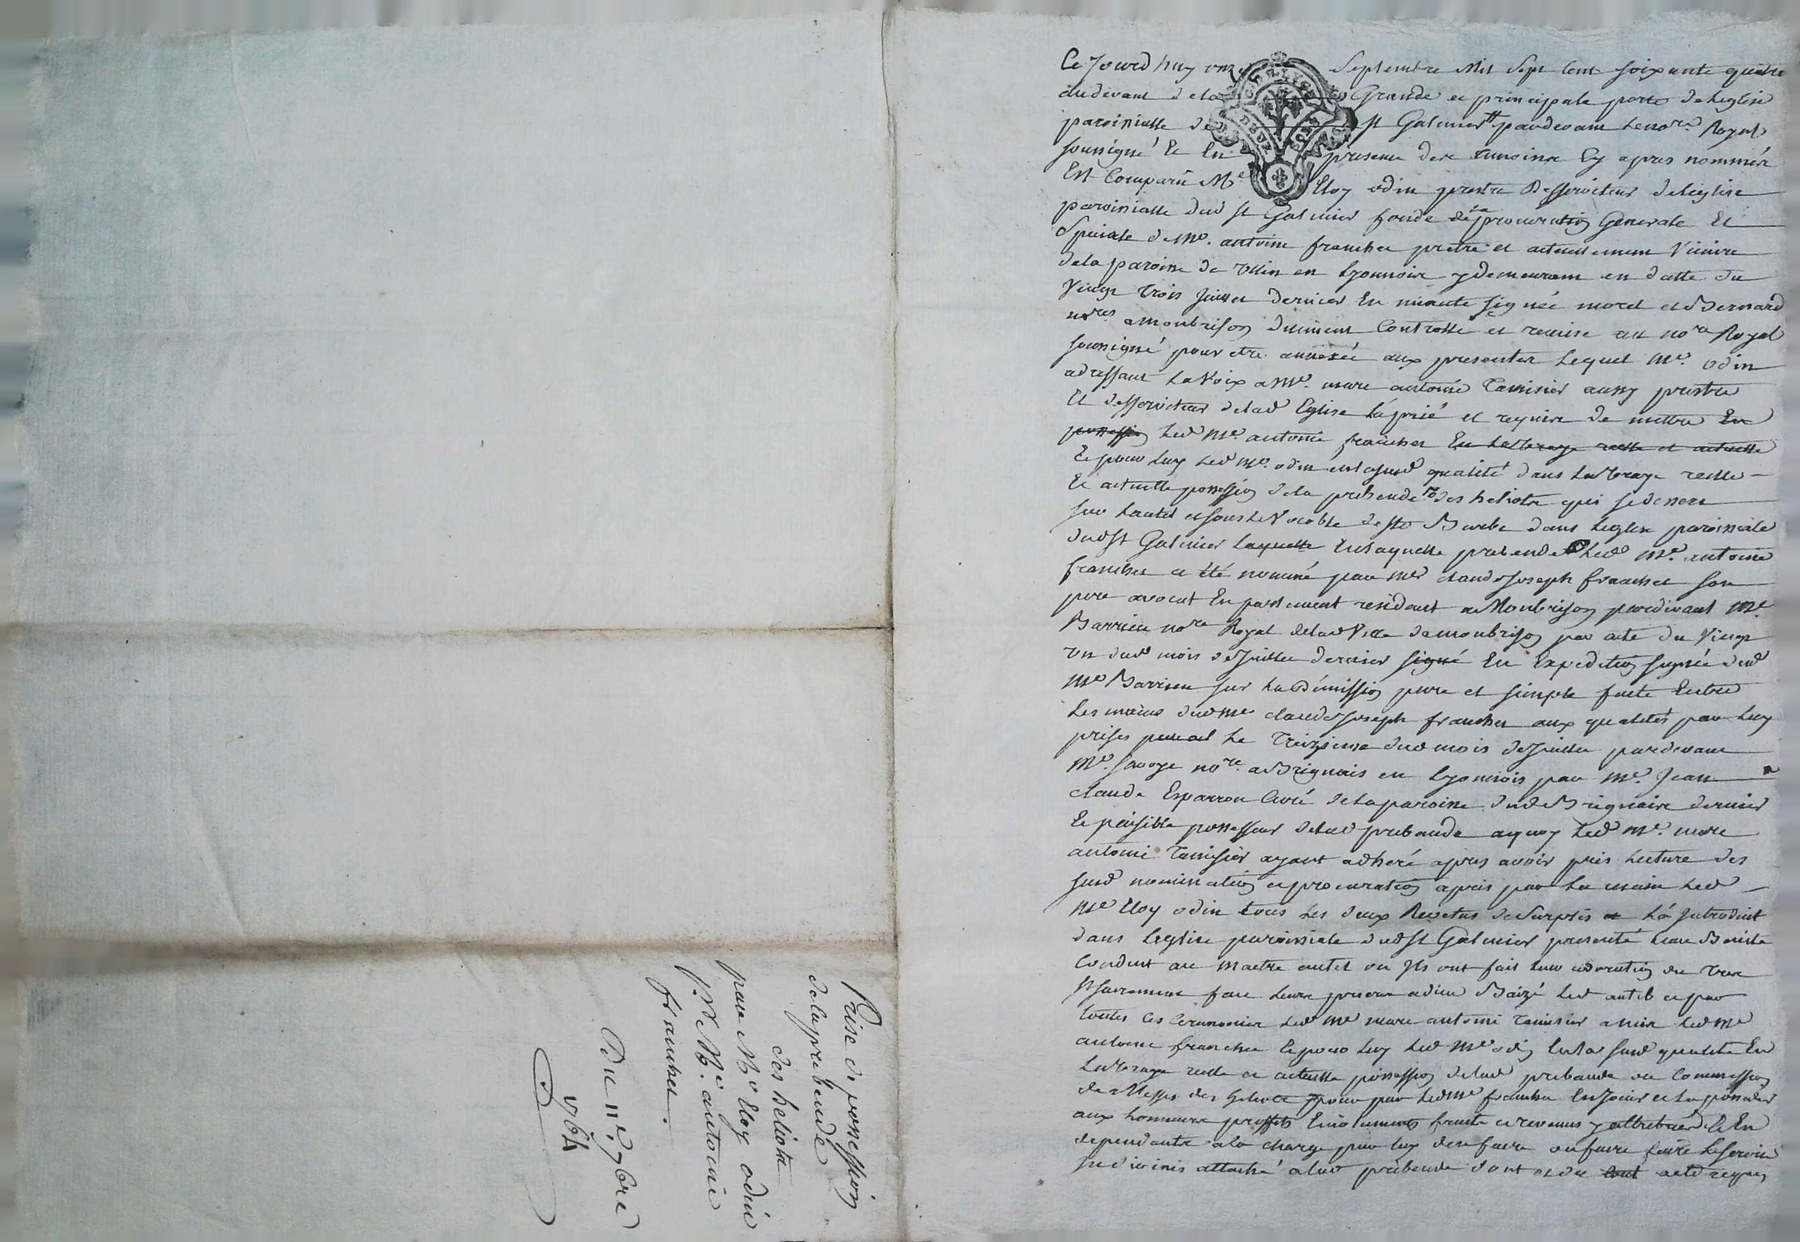 Prise de possession
de la prebende
des heliots
par Me Eloy odin
pr. de Me. antoine
franchet.
Du 11e. 7bre
1764
Ce Jourd'huy onze Septembre Mil Sept Cent soixante quatre
au devant de la Grande et principale porte de leglise
paroissialle de St Galmier pardevant le nore. Royal
soussigné Et En presence des temoins Cy apres nommés
Est Comparu Me Eloy odin prestre Desserviteur de leglise
paroissialle dud St Galmier fondé de procuration Generale Et
Speciale de Me. antoine franchet prestre et actuellement Vicaire
de la paroisse de en Lyonnois y demeurant en datte du
Vingt trois Juillet dernier En minute signée morel et Bernard
nores a monbrison duement Controllé et remise au nore Royal
soussigné pour etre annexée aux presentes Lequel Me. odin
adressant La Voix a Me. marc antoine Tamisier aussy prestre
Et desserviteur de lad Eglise L'a prié et requis de mettre En
possession led Me. antoine franchet En La Vraye reelle et actuelle
Et pour luy led Me. odin en lad qualité dans la Vraye reelle
Et actuelle possession de la prebende des heliots qui se dessert
sur lautel et sous le Vocable de Ste Barbe dans leglise paroissiale
dud St Galmier laquelle En laquelle prebende led Me. antoine
franchet a été nommé par Me Claude Joseph franchet son
pere avocat En parlement residant a Monbrison pardevant Me
Barrieu nore Royal de lad Ville de monbrison par acte du Vingt
un dud mois de Juillet dernier signé En Expedition signée dud
Me Barrieu sur la demission pure et simple faite Entre
Les mains dud Me claude Joseph franchet aux qualités par luy
prises Le Treizieme dud mois de Juillet pardevant
Me. Savoye nore. a Brignais en Lyonnois par Me. Jean
claude Esparron Curé de la paroisse dud Brignais dernier
Et paisible possesseur de lad prebende a quoy led Me. marc
antoine Tamisier ayant adheré apres avoir pris Lecture des
susd nomination et procuration a pris par la main led
Me Eloy odin tous les deux Revetus de Surplis et L'a Introduit
dans leglise paroissiale dud St Galmier presenté leau Benite
Conduit au maitre autel ou Ils ont fait leur adoration du Tres
St Sacrement fait leurs prieres a dieu Baizé led autel et par
toutes ces Ceremonies led Me marc antoine Tamisier a mis led Me
antoine franchet Et pour luy led Me odin En la susd qualité En
La Vraye reelle et actuelle possession de lad prebende ou Commission
de Messes des heliots pour par led Me franchet En Jouir et la posseder
aux honneurs proffits Emoluments fruits et revenus y attribués Et En
dependants a la charge par luy den faire ou faire faire le Service
In divinis attaché a lad prebende dont et du tout acte requis